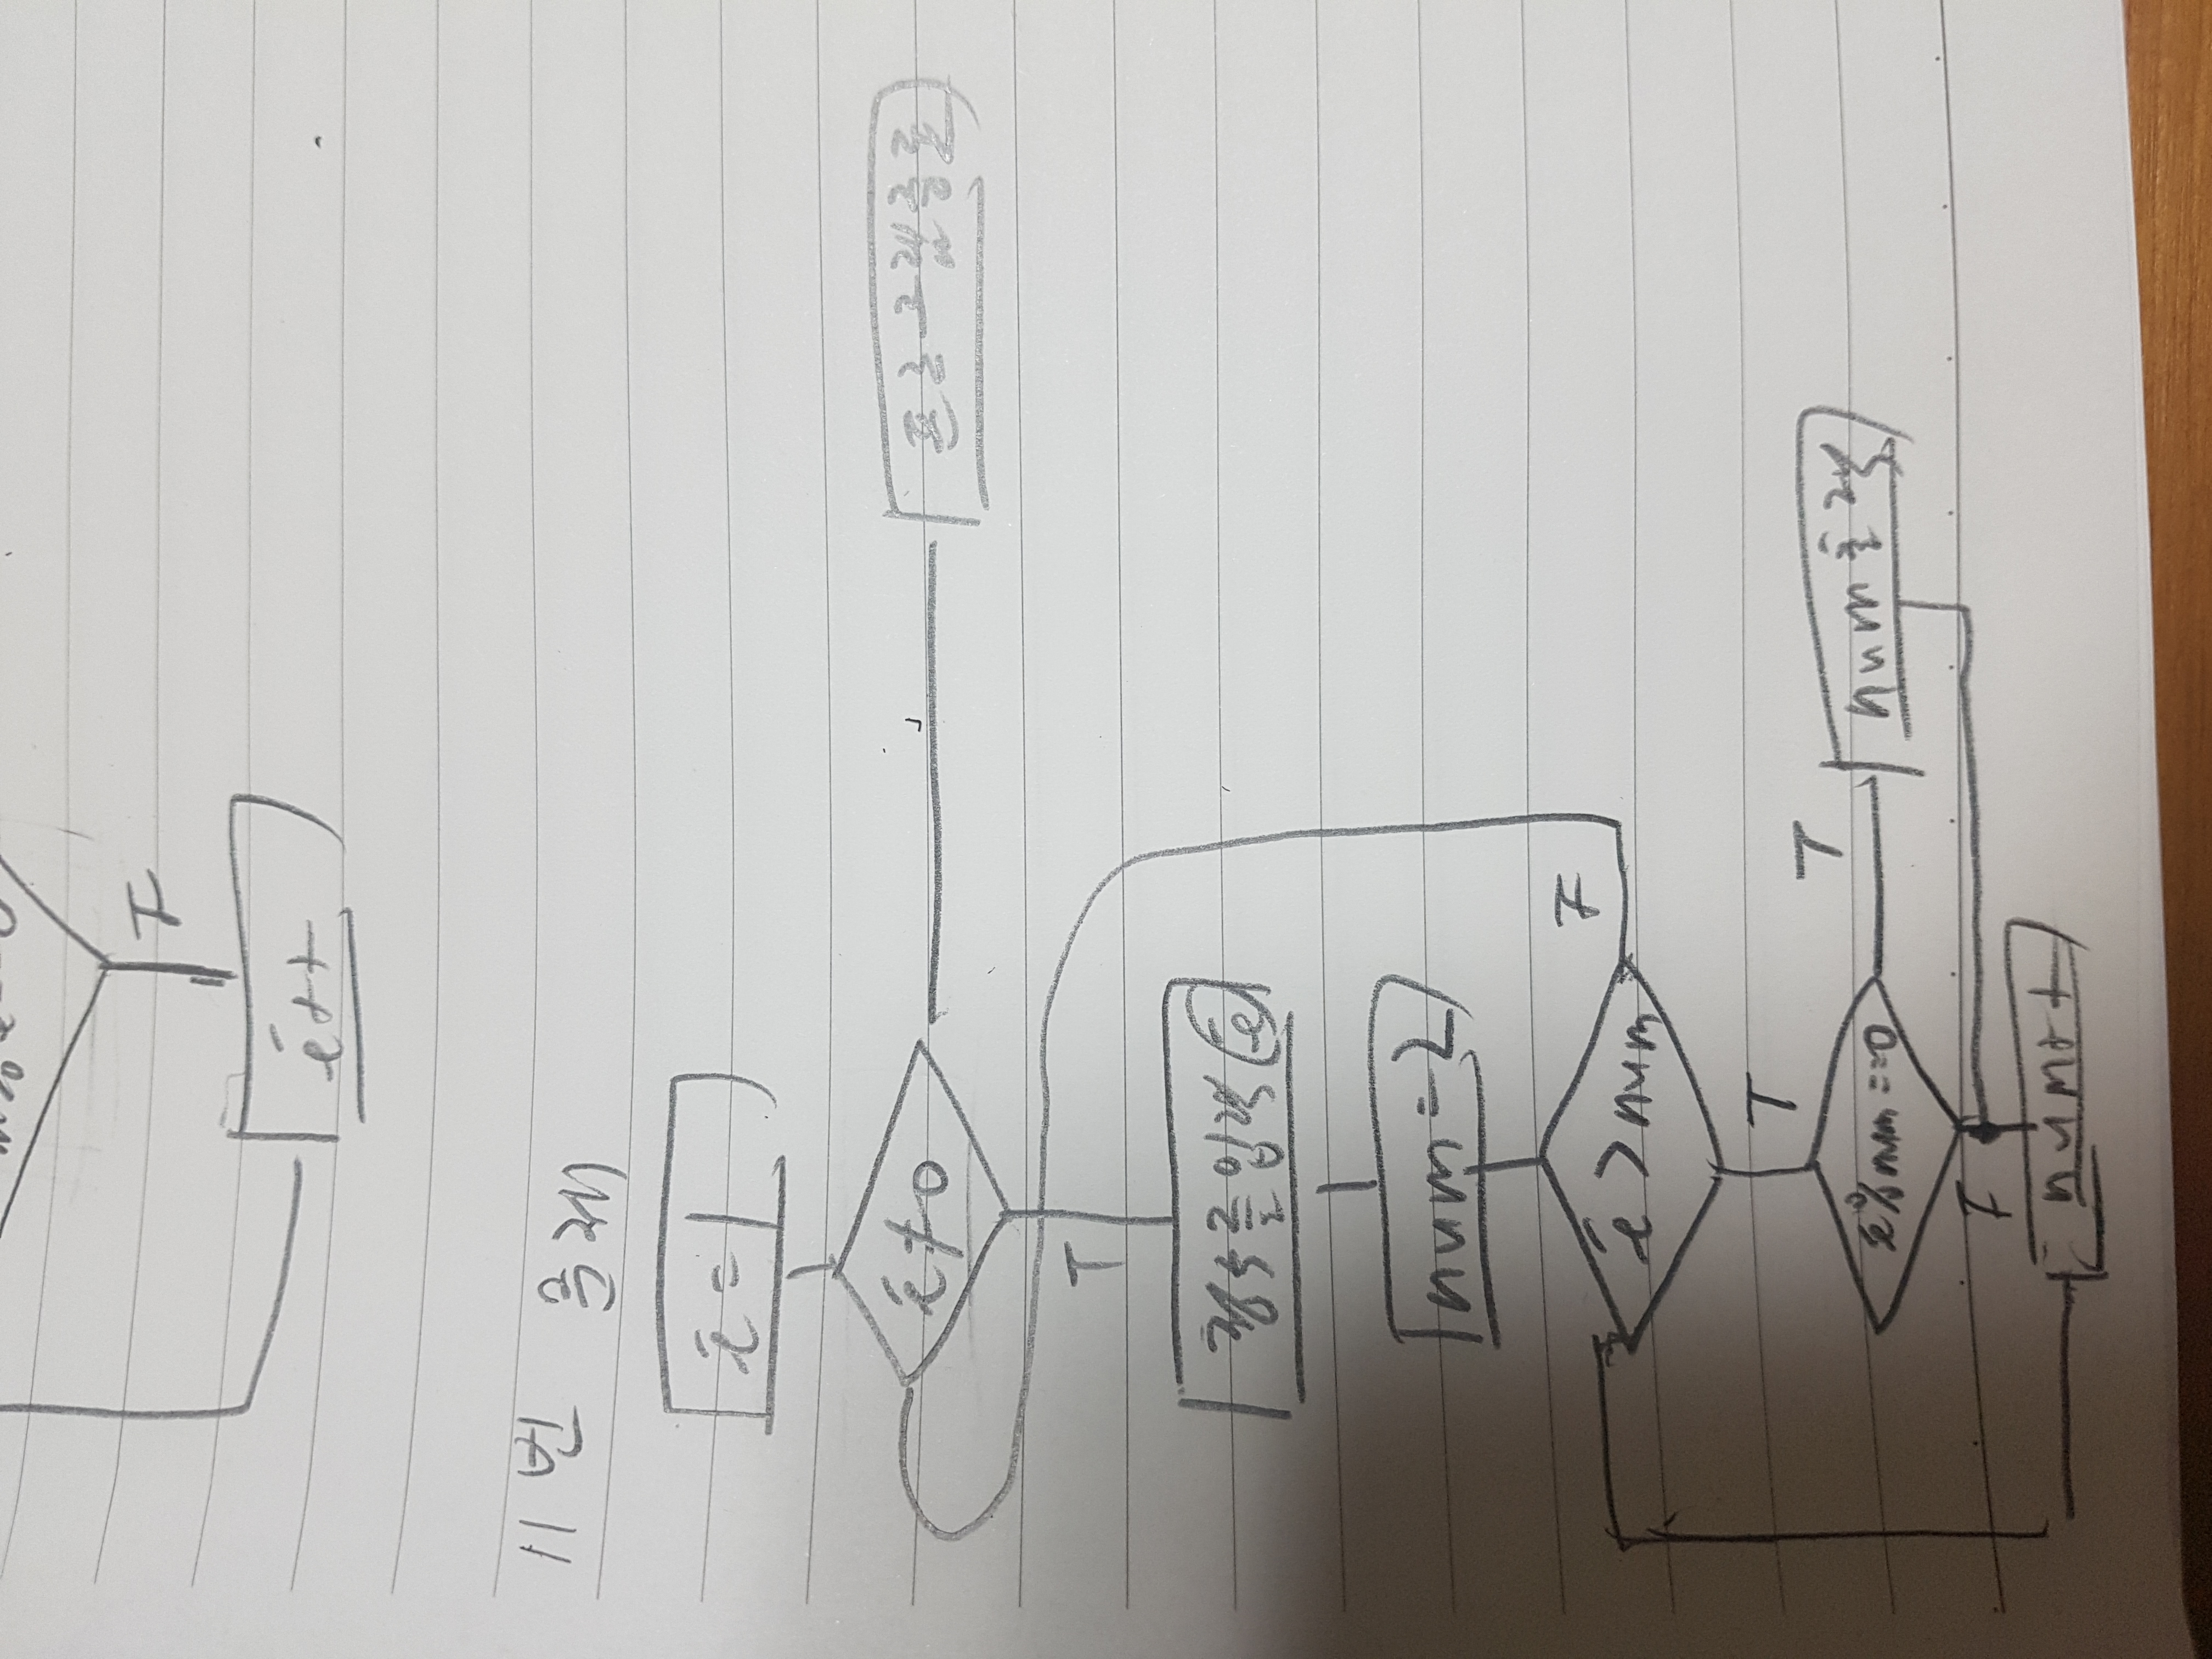 F
i++
11번 문제
i=1
i≠0
프로그램종료
T
정수를입력(i)
num=2
F
i>num
T
T
i%num==0
num출력
F
num++